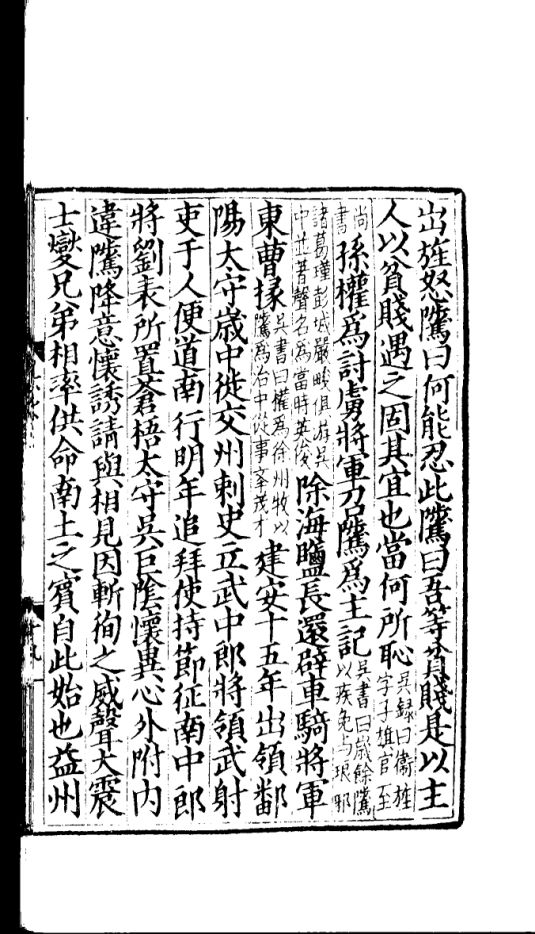 出旌怒騭曰何能忍此騭曰吾等貧賤是以主
人以貧賤遇之固其宜也當何所恥吳録曰衞旌字子旗官至
尚書孫權爲討虜將軍召騭爲主記吳書曰歲餘騭以疾免与琅邪
諸葛瑾彭城嚴畯俱游吳中並著聲名爲當時英俊除海鹽長還辟車騎將軍
東曹掾吳書曰權爲徐州牧以騭爲治中從事舉茂才建安十五年出領鄱
陽太守歲中徙交州刺史立武中郎將領武射
吏千人便道南行明年追拜使持節征南中郎
將劉表所置蒼梧太守吳巨陰懷異心外附内
違騭降意懷誘請與相見因斬徇之威聲大震
士燮兄弟相率供命南土之賓自此始也益州